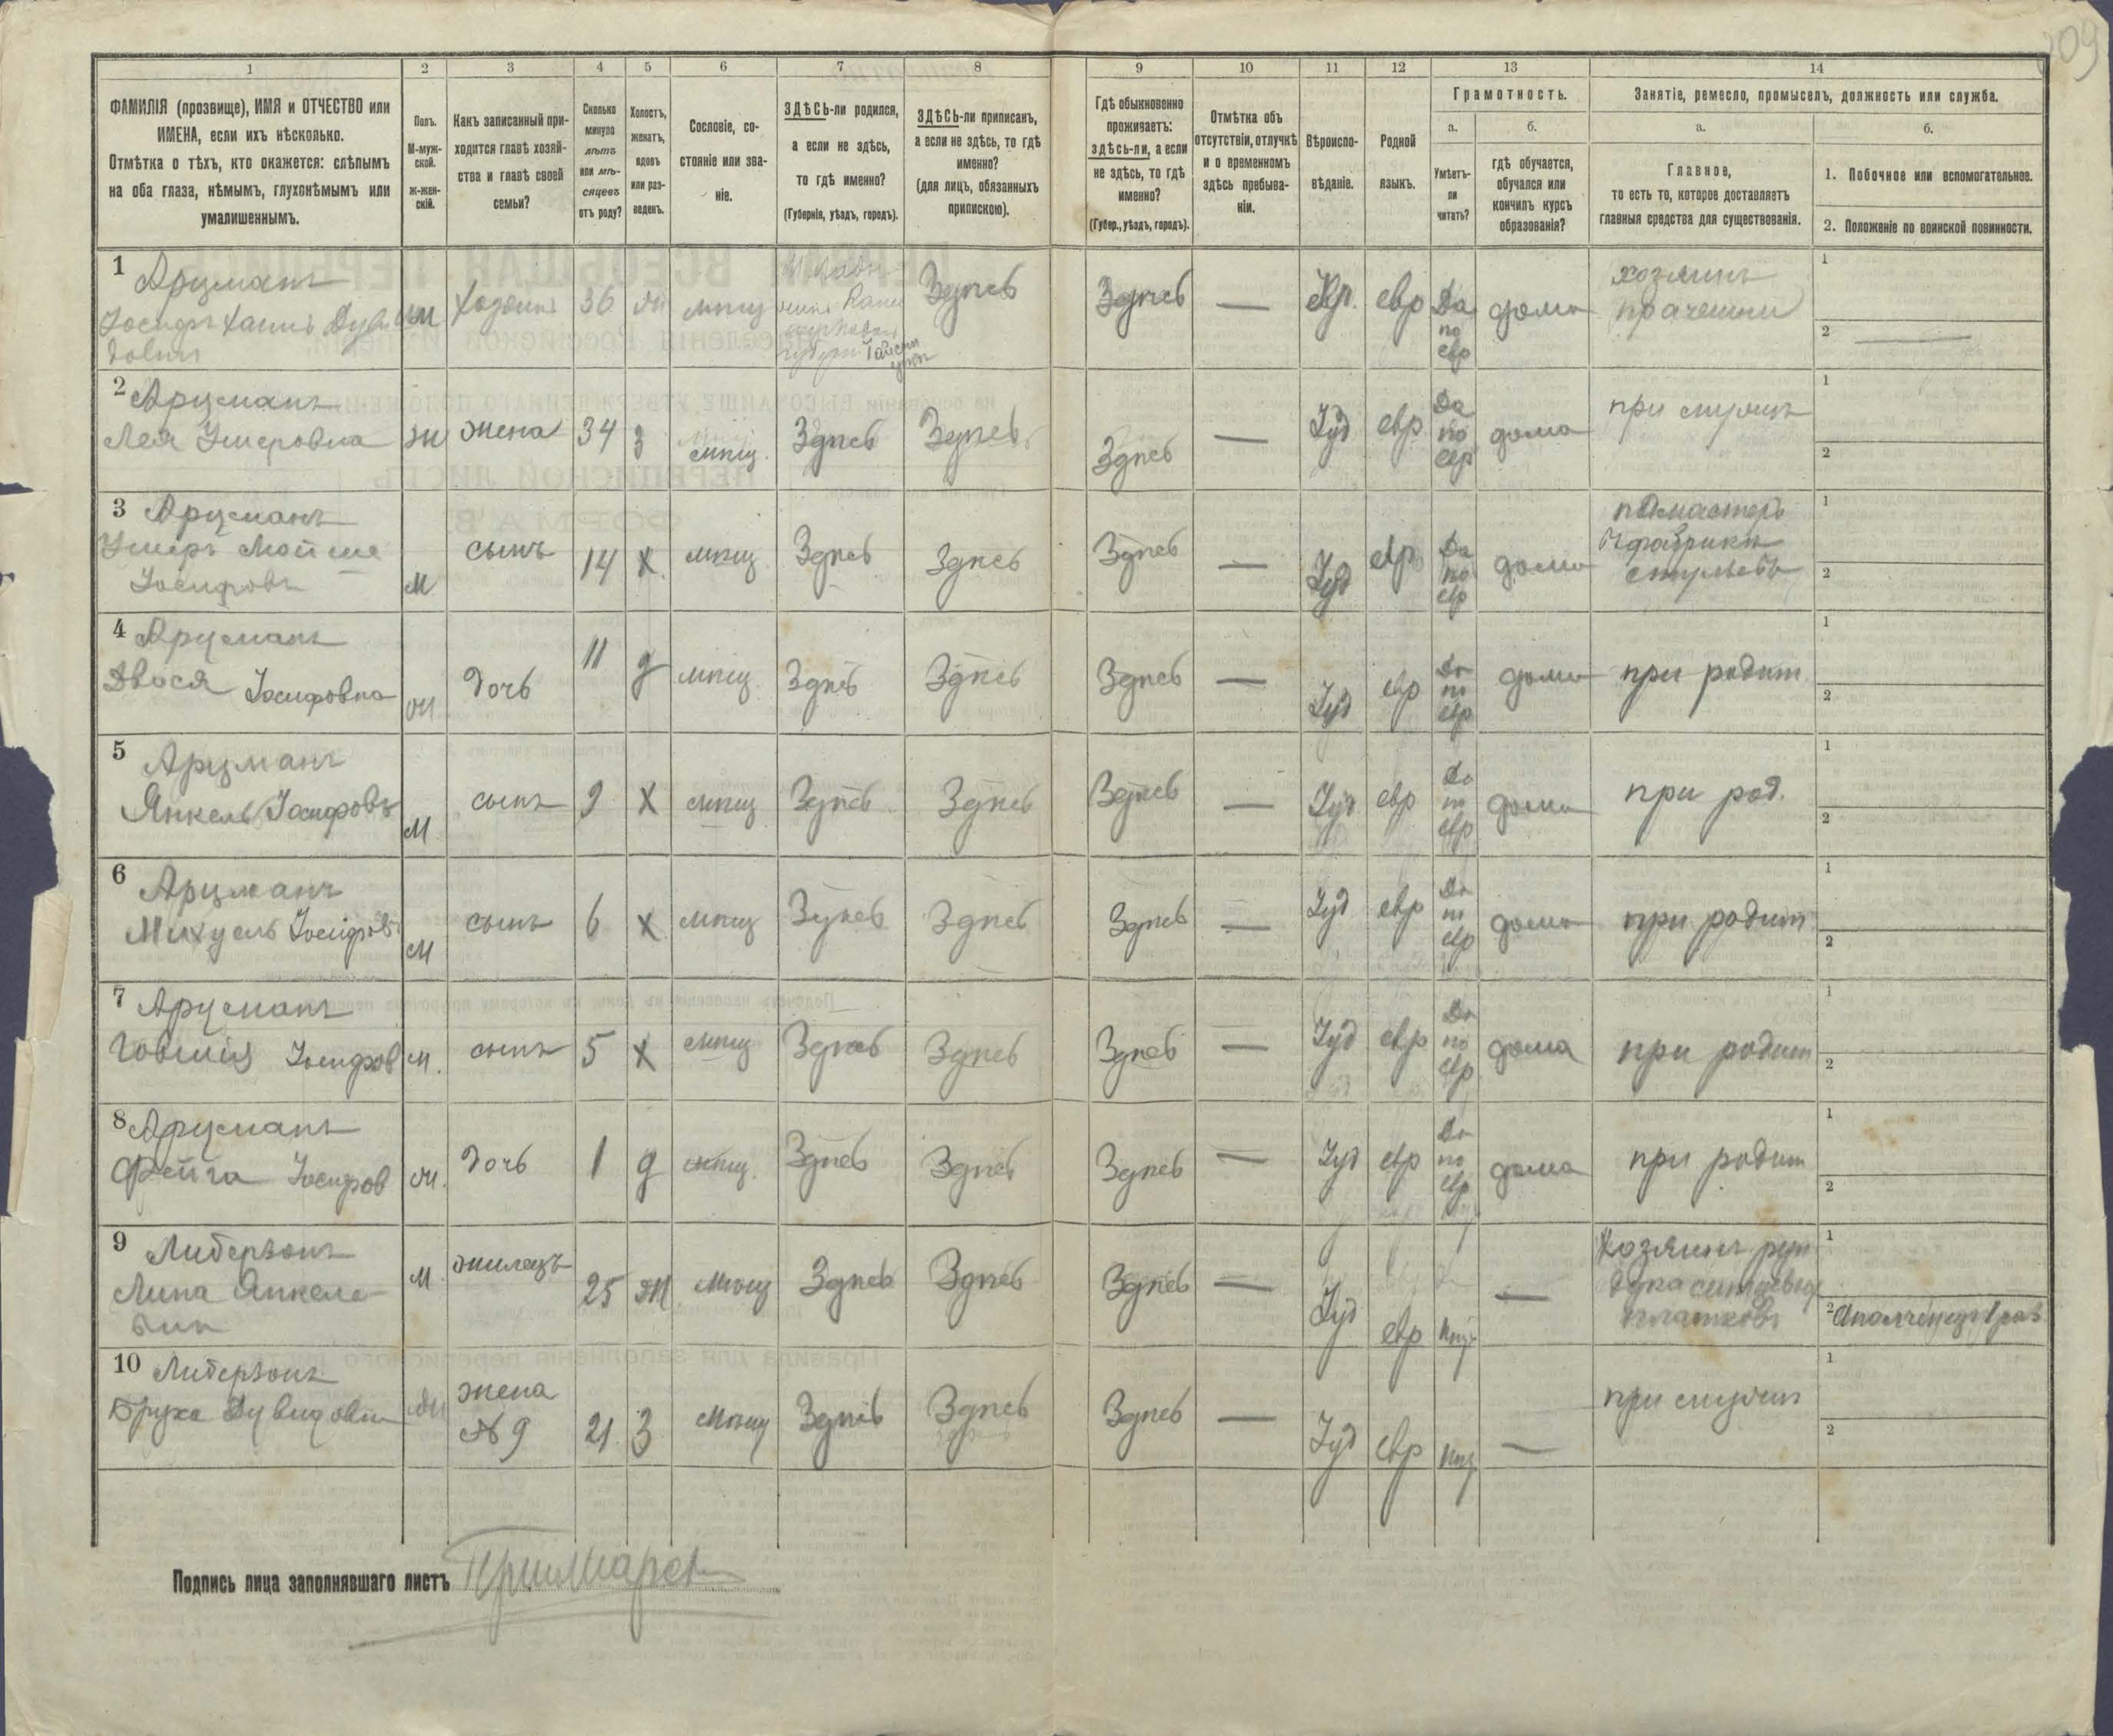 09
1 2 3 4 5 6 7 8 9 10 11 12 13 14
ФАМИЛІЯ (прозвище), ИМЯ и ОТЧЕСТВО или
ИМЕНА, если ихъ нѣсколько.
Отмѣтка о тѣхъ, кто окажется: слѣпымъ
на оба глаза, нѣмымъ, глухонѣмымъ или
умалишеннымъ.
Полъ.
М-муж-
ской.
ж-жен-
скій.
Какъ записанный при-
ходится главѣ хозяй-
ства и главѣ своей
семьи?
Сколько
минуло
лѣтъ
или мѣ-
сяцевъ
отъ роду?
Холостъ,
женатъ,
вдовъ
или раз-
веденъ.
Сословіе, со-
стояніе или зва-
ніе.
ЗДѢСЬ-ли родился,
а если не здѣсь,
то гдѣ именно?
(Губернія, уѣздъ, городъ).
ЗДѢСЬ-ли приписанъ,
а если не здѣсь, то гдѣ
именно?
(для лицъ, обязанныхъ
припискою).
Гдѣ обыкновенно
проживаетъ:
здѣсь-ли, а если
не здѣсь, то гдѣ
именно?
(Губер., уѣздъ, городъ).
Отмѣтка объ
отсутствіи, отлучкѣ
и о временномъ
здѣсь пребыва-
ніи.
Вѣроиспо-
вѣданіе.
Родной
языкъ.
Грамотность.
а.
Умѣетъ-
ли
читать?
б.
гдѣ обучается,
обучался или
кончилъ курсъ
образованія?
Занятіе, ремесло, промыселъ, должность или служба.
а.
Главное,
то есть то, которое доставляетъ
главныя средства для существованія.
б.
1. Побочное или вспомогательное.
2. Положеніе по воинской повинности.
1 Арцманъ
Іосифъ Хаимъ
М
Хозяинъ
36
мпщ
Здпсв
Здпсв
—
евр
Да
по
евр
дома
хозяинъ
1
2 —
2 Арцманъ
Лея Умеровна
ж
жена
34
з
мпщ.
Здпсв
Здпсв
Здпсв
—
Іуд
евр
Да
по
евр
дома
1
2
3 Арцманъ
Умеръ Мойше
Іосифовъ
М
сынъ
14
х
мпщ
Здпсв
Здпсв
Здпсв
—
Іуд
евр
Да
по
евр
дома
подмастеръ
фабрики
стульевъ
1
2
4 Арцманъ
Двося Іосифовна
ж
дочь
11
д
мпщ
Здпсв
Здпсв
Здпсв
—
Іуд
евр
Да
по
евр
дома
при родит
1
2
5 Арцманъ
Янкель Іосифовъ
М
сынъ
9
х
мпщ
Здпсв
Здпсв
Здпсв
—
Іуд
евр
Да
по
евр
дома
при род.
1
2
6 Арцманъ
Михуель Іосифовъ
М
сынъ
6
х
мпщ
Здпсв
Здпсв
Здпсв
—
Іуд
евр
Да
по
евр
дома
при родит
1
2
7 Арцманъ
Іосифов
м.
сынъ
5
х
мпщ
Здпсв
Здпсв
Здпсв
—
Іуд
евр
Да
по
евр
дома
при родит
1
2
8 Арцманъ
Фейга Іосифов
ж.
дочь
1
д
мпщ.
Здпсв
Здпсв
Здпсв
—
Іуд
евр
Да
по
евр
дома
при родит
1
2
9 Либерзонъ
Липа Янкеле-
вич
М
жилецъ
25
ж
мпщ
Здпсв
Здпсв
Здпсв
—
Іуд
евр
—
Хозяинъ
платковъ
1
2
10 Либерзонъ
Бруха Дувидовна
ж
жена
№ 9
21
З
мпщ
Здпсв
Здпсв
Здпсв
—
Іуд
евр
—
1
2
Подпись лица заполнявшаго листъ